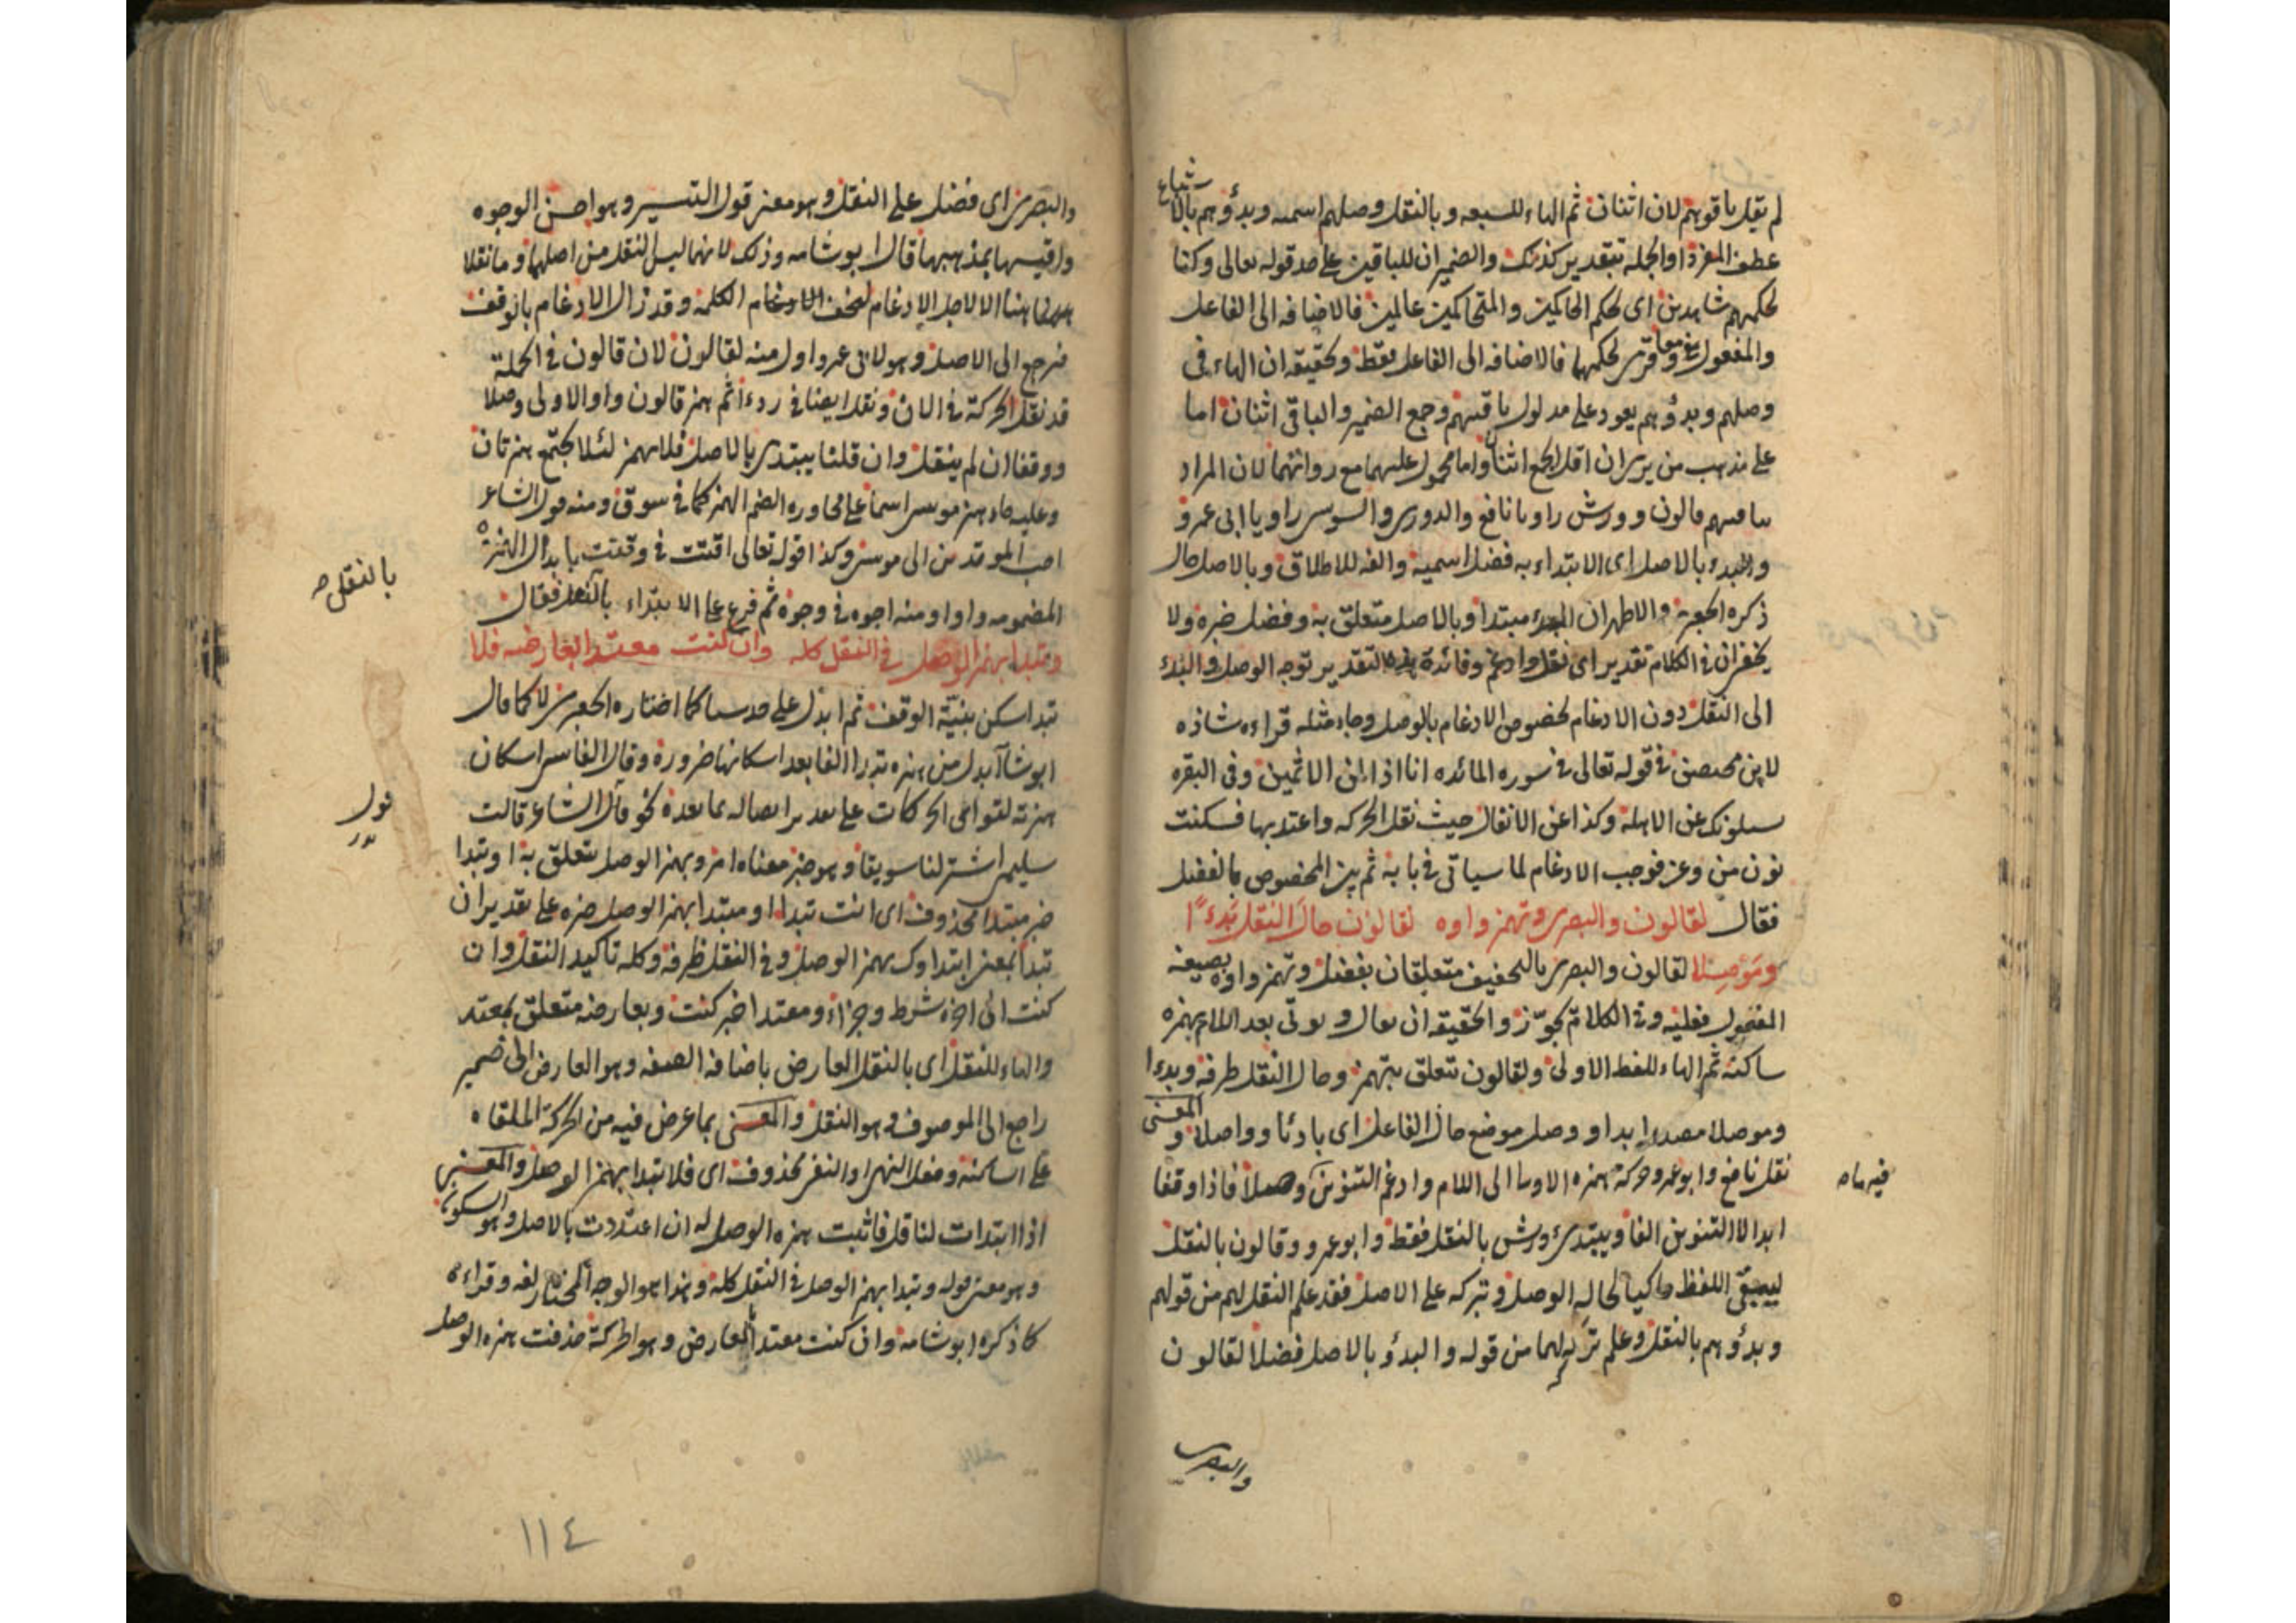 لم يقل باقوهم لان اثنان ثم الهاء للسبعه وبالنقل وصلهم اسميه وبدؤهم بالاتباع
عطف المفرد او الجمله بتقدير كذلك والضميران للباقين على حد قوله تعالى وكنا
لحكمهم شاهدين اى لحكم الحاكمين والمتحاكمين عالمين فالاضافه الى الفاعل
والمفعول معا وقرئ لحكمهما فالاضافه الى الفاعل فقط وتحقيقه ان الهاء فى
وصلهم وبدؤهم يعود على مدلول باقيهم وجمع الضمير والباقى اثنان اما
على مذهب من يرى ان اقل الجمع اثنان واما محمول عليهما مع رواتهما لان المراد
بباقيهم قالون وورش راويا نافع والدورى والسوسى راويا ابى عمرو
والبدء بالاصل اى الابتداء به فضل اسميه والفه للاطلاق وبالاصل حال
ذكره الجعبرى والاظهر ان البدء مبتدا وبالاصل متعلق به وفضل خبره ولا
يخفى ان فى الكلام تقدير اى نقل وادغم وفائدة هذا التقدير توجه الوصل والبدء
الى النقل دون الادغام لخصوص الادغام بالوصل وجاء مثله قراءه شاذه
لابن محيصن فى قوله تعالى فى سوره المائده انا اذا لمن الاثمين وفى البقره
يسلونك عن الاهله وكذا عن الانفال حيث نقل الحركه واعتد بها فسكنت
نون من وعن فوجب الادغام لما سياتى فى بابه ثم بين المخصوص بالفضل
فقال لقالون والبصرى وتهمز واوه لقالون حال النقل بدءًا
وموصلا لقالون والبصرى بالتخفيف متعلقان بفضل وتهمز واوه بصيغه
المفعول فعليه وفى الكلام تجوّز والحقيقه ان يقال ويوتى بعد اللام بهمزه
ساكنه ثم الهاء للفظ الاولى ولقالون متعلق بتهمز وحال النقل ظرفه وبدءا
وموصلا مصدرا بدا ووصل موضع حال الفاعل اى بادئا وواصلا والمعنى
نقل نافع وابو عمرو حركة همزه الاولى الى اللام وادغم التنوين وصلا فاذا وقفا
ابدلا التنوين الفا ويبتدئ ورش بالنقل فقط وابو عمرو وقالون بالنقل
ليبقى اللفظ حاكيا لحاله الوصل وتركه على الاصل فقد علم النقل لهم من قولهم
وبدؤهم بالنقل وعلم تركه لهما من قوله والبدؤ بالاصل فضل لقالون
والبصرى
والبصرى اى فضل على النقل وهو معنى قول التيسير وهو احسن الوجوه
واقيسها بمذهبهما قال ابو شامه وذلك لانهما ليس النقل من اصلهما وما نقلا
ههنا الا لاجل الادغام لتخف الكلمه وقد زال الادغام بالوقف
فرجع الى الاصل وهو لابى عمرو اولى منه لقالون لان قالون فى الجملة
قد نقل الحركة فى الان ونقل ايضا فى ردءا ثم همز قالون واو الاولى وصلا
ووقفا ان لم ينقل وان قلنا يبتدى بالاصل فلا يهمز لئلا يجتمع همزتان
وعليه جاء همز موسى اسما على مجاوره الضم الهمز كما فى سوق ومنه قول الشاعر
احب الموقدين الى موسى وكذا قوله تعالى اقتت فى وقتت بابدال الهمزة
المضمومه واوا ومنه اجوه فى وجوه ثم فرع على الابتداء بالنقل فقال
وتبدا بهمز الوصل فى النقل كله وان كنت معتدا بعارضه فلا
تبدا سكن بنيّة الوقف ثم ابدل على كما اختاره الجعبرى لا كما قال
ابو شامه ابدل من همزه تبدا الفا بعد اسكانها ضرورة وقال الفاسى اسكان
همزته لتوالى الحركات على تقدير اتصاله بما بعده نحو قال الشاعر قالت
سليمى اشتر لنا سويقا وهو خبر معناه امر وبهمز الوصل متعلق به او تبدا
خبر مبتدا محذوف اى انت تبدا او مبتدا بهمز الوصل خبره على تقدير ان
تبدا بمعنى ابتداوك بهمز الوصل وفى النقل ظرفه وكله تاكيد النقل وان
كنت الى اخره شرط وجزاء ومعتدا خبر كنت وبعارضه متعلق بمعتد
والهاء للنقل اى بالنقل العارض باضافه الصفه وهو العارض الى ضمير
راجع الى الموصوف وهو النقل والمعنى بما عرض فيه من الحركة الملقاه
على الساكنه وفعل النهى او النفى محذوف اى فلا تبدا بهمز الوصل والمعنى
اذا ابتدات لناقل فاثبت همزه الوصل له ان اعتددت بالاصل وهو السكون
وهو معنى قوله وتبدا بهمز الوصل فى النقل كله وهذا هو الوجه المختار لغه وقراءه
كما ذكره ابو شامه وان كنت معتدا بالعارض وهو الحركة حذفت همزه الوصل
بالنقل
١١٤